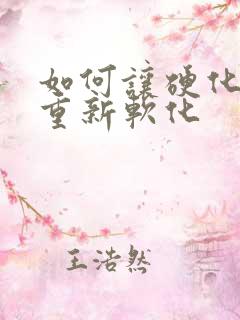 如何讓硬化
重新軟化
王浩然